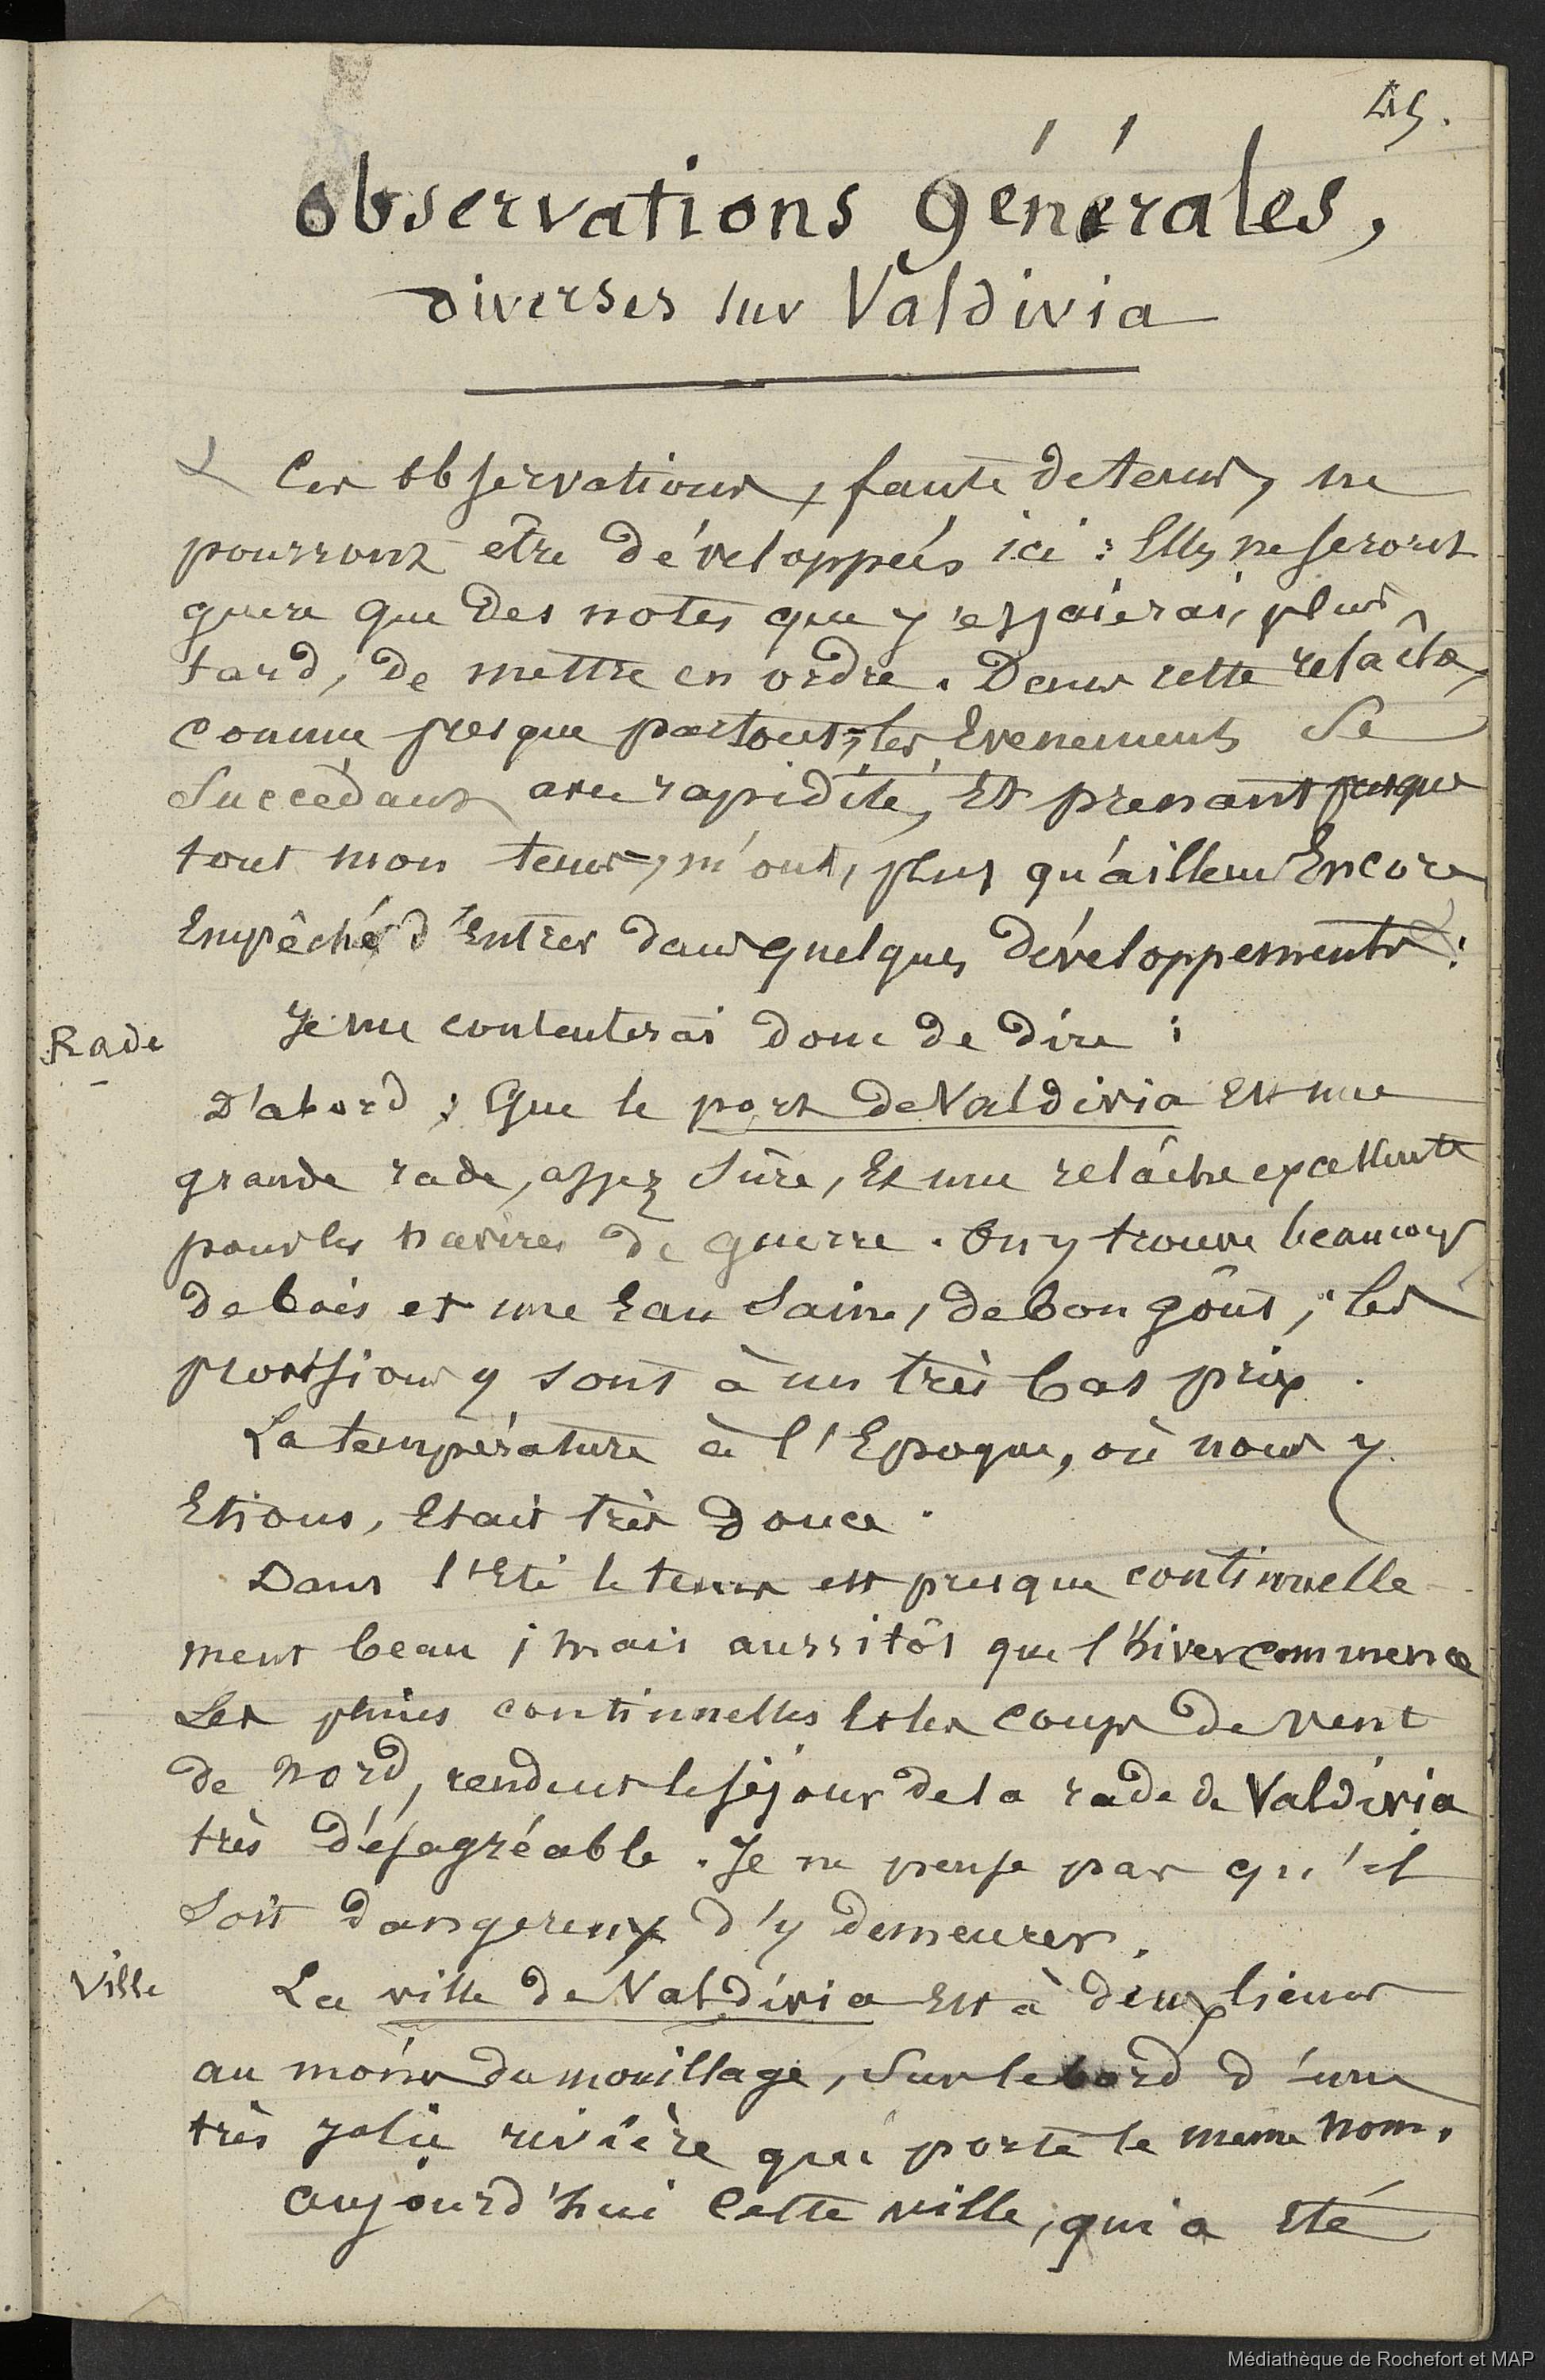 45.
Observations générales,
diverses sur Valdivia
Ces observations, faute de tems, ne
pourront être développées ici : Elles ne seront
guère que des notes que j'essaierai, plus
tard, de mettre en ordre. Dans cette relâche,
comme presque partout, les Evenements se
succédant avec rapidité, Et prenant presque
tout mon tems, m'ont, plus qu'ailleurs Encore
Empêché d'Entrer dans quelques développements :
Rade
Je me contenterai donc de dire :
D'abord ; Que le port de Valdivia Est une
grande rade, assez sûre, Et une relâche excellente
pour les navires de guerre. On y trouve beaucoup
de bois et une Eau saine, de bon goût ; les
provisions y sont à un très bas prix.
La température à l'Epoque, où nous y
Etions, Etait très douce.
Dans l'Eté le tems est presque continuelle-
ment beau ; mais aussitôt que l'hiver commence
Les pluies continuelles Et les coups de vent
de Nord, rendent le séjour de la rade de Valdivia
très désagréable. Je ne pense pas qu'il
soit dangereux d'y demeurer.
Ville
La ville de Valdivia Est à deux lieues
au moins du mouillage, sur le bord d'une
très jolie rivière qui porte le même nom.
aujourd'hui cette ville, qui a Eté
Médiathèque de Rochefort et MAP